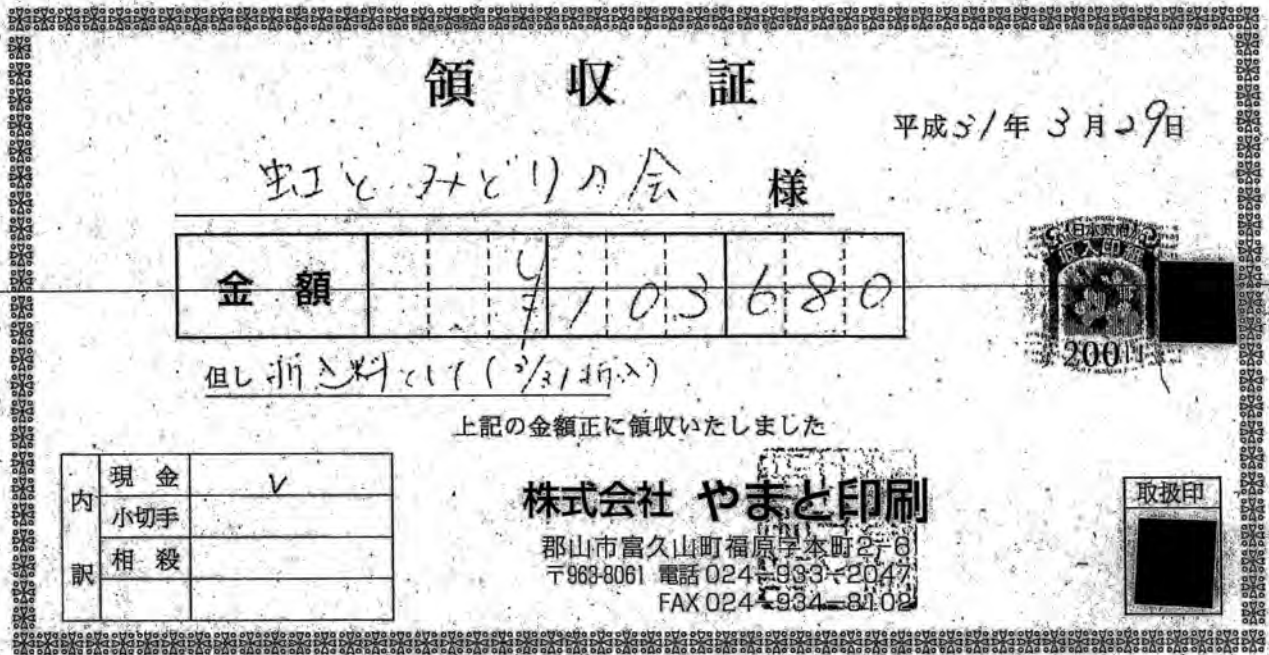 領収証
平成31年3月29日
虹とみどりの会 様
金額 ¥103680
但し 折込料として(3/31折込)
日本政府
収入印紙
200円
上記の金額正に領収いたしました
内訳
現金 V
小切手
相殺
株式会社 やまと印刷
郡山市富久山町福原字本町2-6
〒963-8061 電話 024-933-2047
FAX 024-934-8102
取扱印